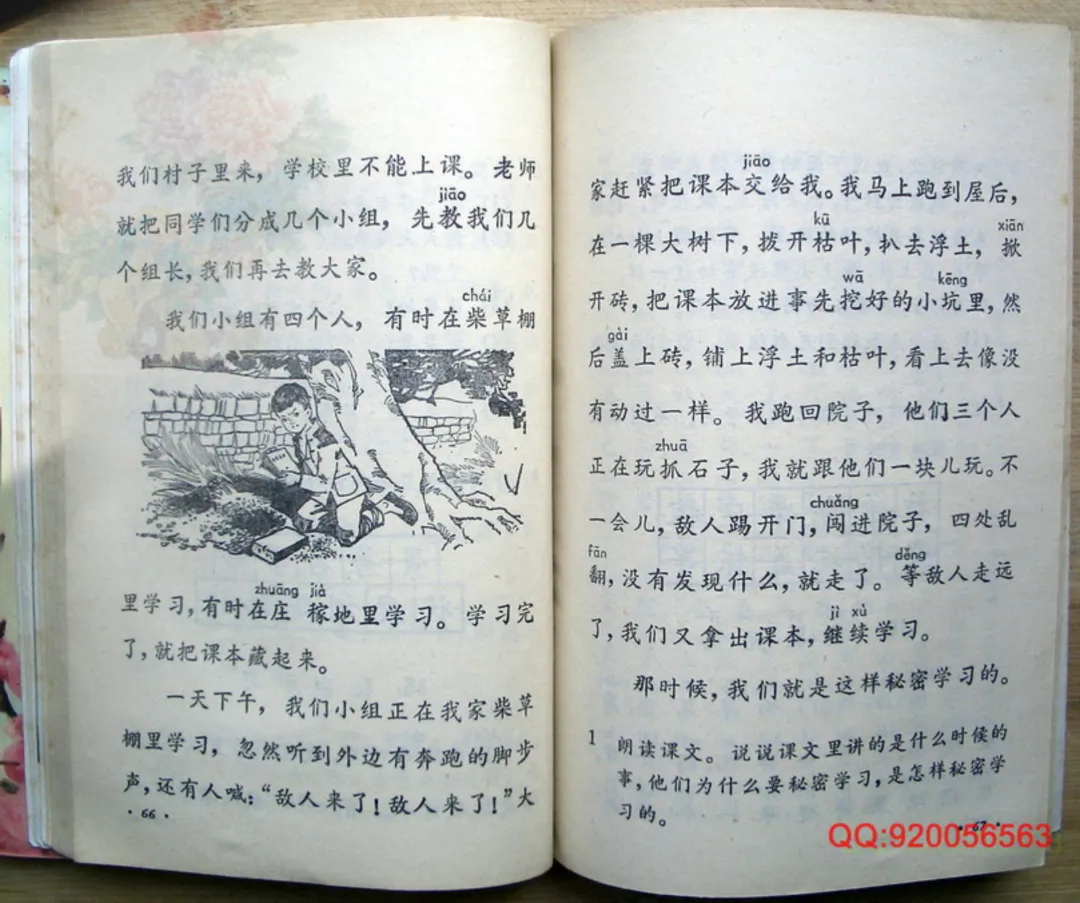 我们村子里来，学校里不能上课。老师
jiāo
就把同学们分成几个小组，先教我们几
个组长，我们再去教大家。
chái
我们小组有四个人，有时在柴草棚
zhuāng jià
里学习，有时在庄稼地里学习。学习完
了，就把课本藏起来。
一天下午，我们小组正在我家柴草
棚里学习，忽然听到外边有奔跑的脚步
声，还有人喊：“敌人来了！敌人来了！”大
·66·
jiāo
家赶紧把课本交给我。我马上跑到屋后，
kū xiān
在一棵大树下，拨开枯叶，扒去浮土，掀
wā kēng
开砖，把课本放进事先挖好的小坑里，然
gài
后盖上砖，铺上浮土和枯叶，看上去像没
有动过一样。我跑回院子，他们三个人
zhuā
正在玩抓石子，我就跟他们一块儿玩。不
chuǎng
一会儿，敌人踢开门，闯进院子，四处乱
fān děng
翻，没有发现什么，就走了。等敌人走远
jì xù
了，我们又拿出课本，继续学习。
那时候，我们就是这样秘密学习的。
1 朗读课文。说说课文里讲的是什么时候的
事，他们为什么要秘密学习，是怎样秘密学
习的。
·67·
QQ:920056563